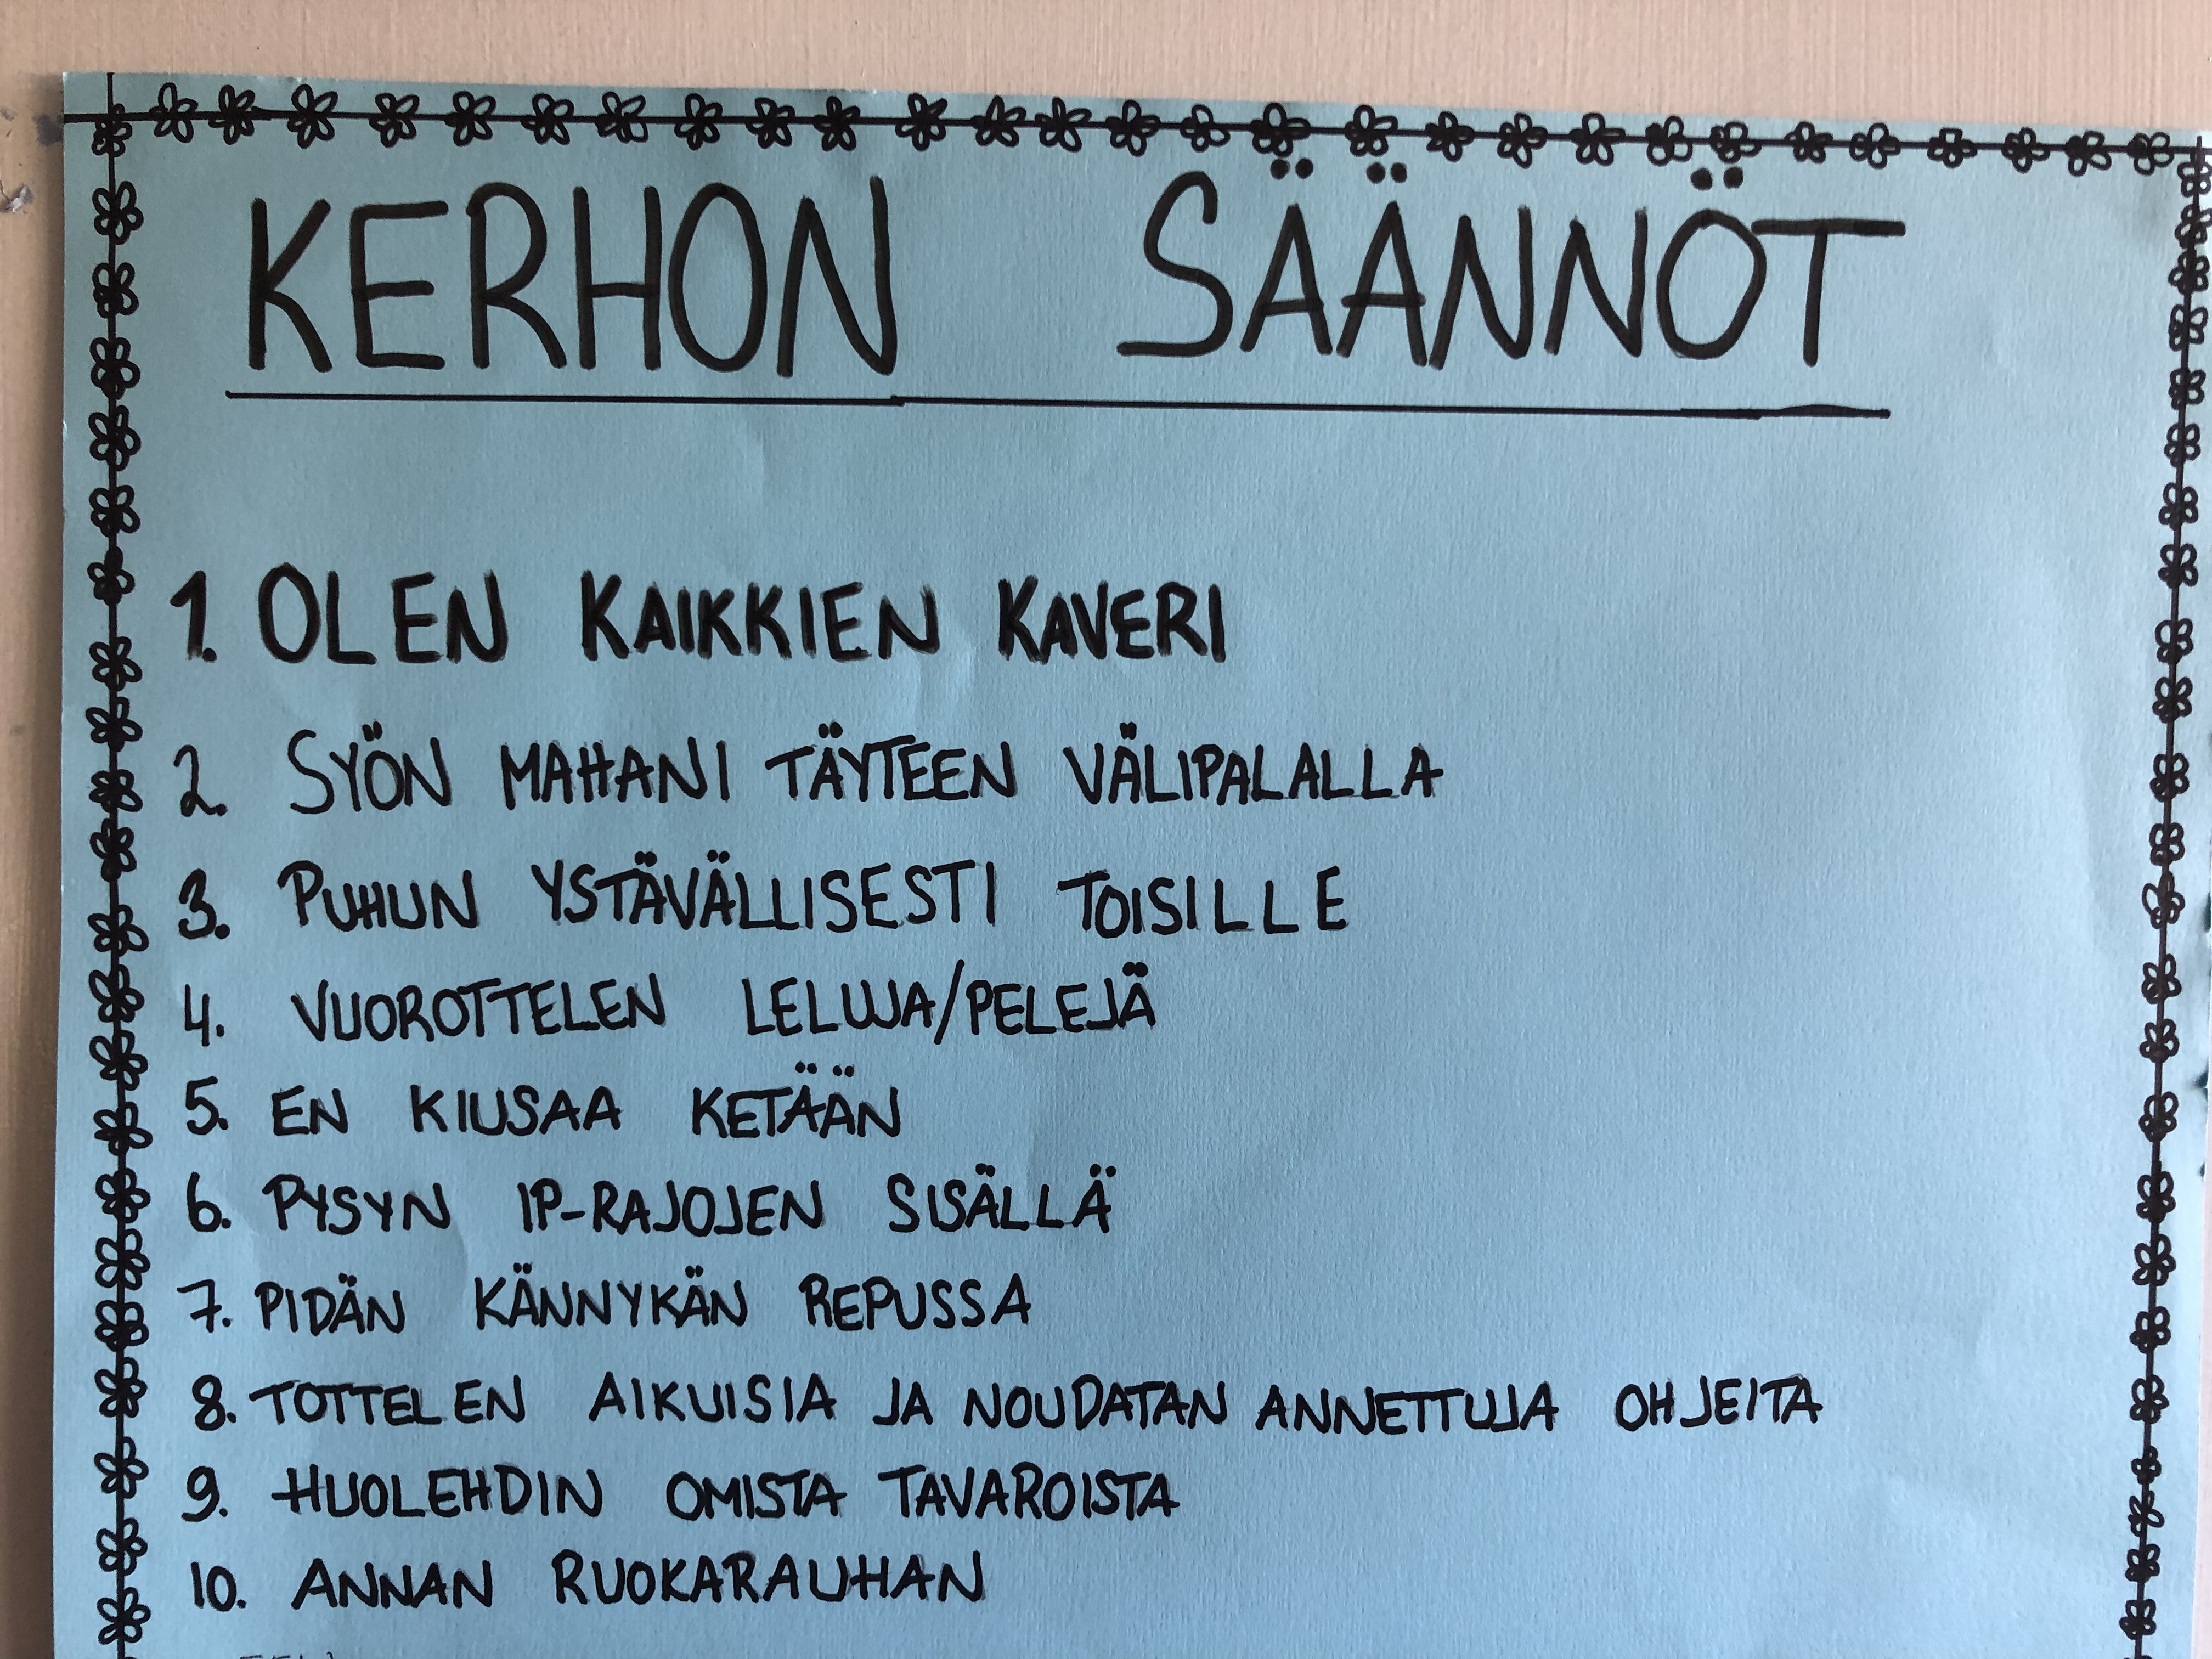 KERHON SÄÄNNÖT
1. OLEN KAIKKIEN KAVERI
2. SYÖN MAHANI TÄYTEEN VÄLIPALALLA
3. PUHUN YSTÄVÄLLISESTI TOISILLE
4. VUOROTTELEN LELUJA/PELEJÄ
5. EN KIUSAA KETÄÄN
6. PYSYN IP-RAJOJEN SISÄLLÄ
7. PIDÄN KÄNNYKÄN REPUSSA
8. TOTTELEN AIKUISIA JA NOUDATAN ANNETTUJA OHJEITA
9. HUOLEHDIN OMISTA TAVAROISTA
10. ANNAN RUOKARAUHAN